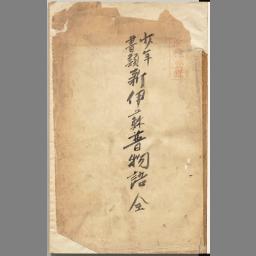 少年
書類 新伊蘇普物語 全